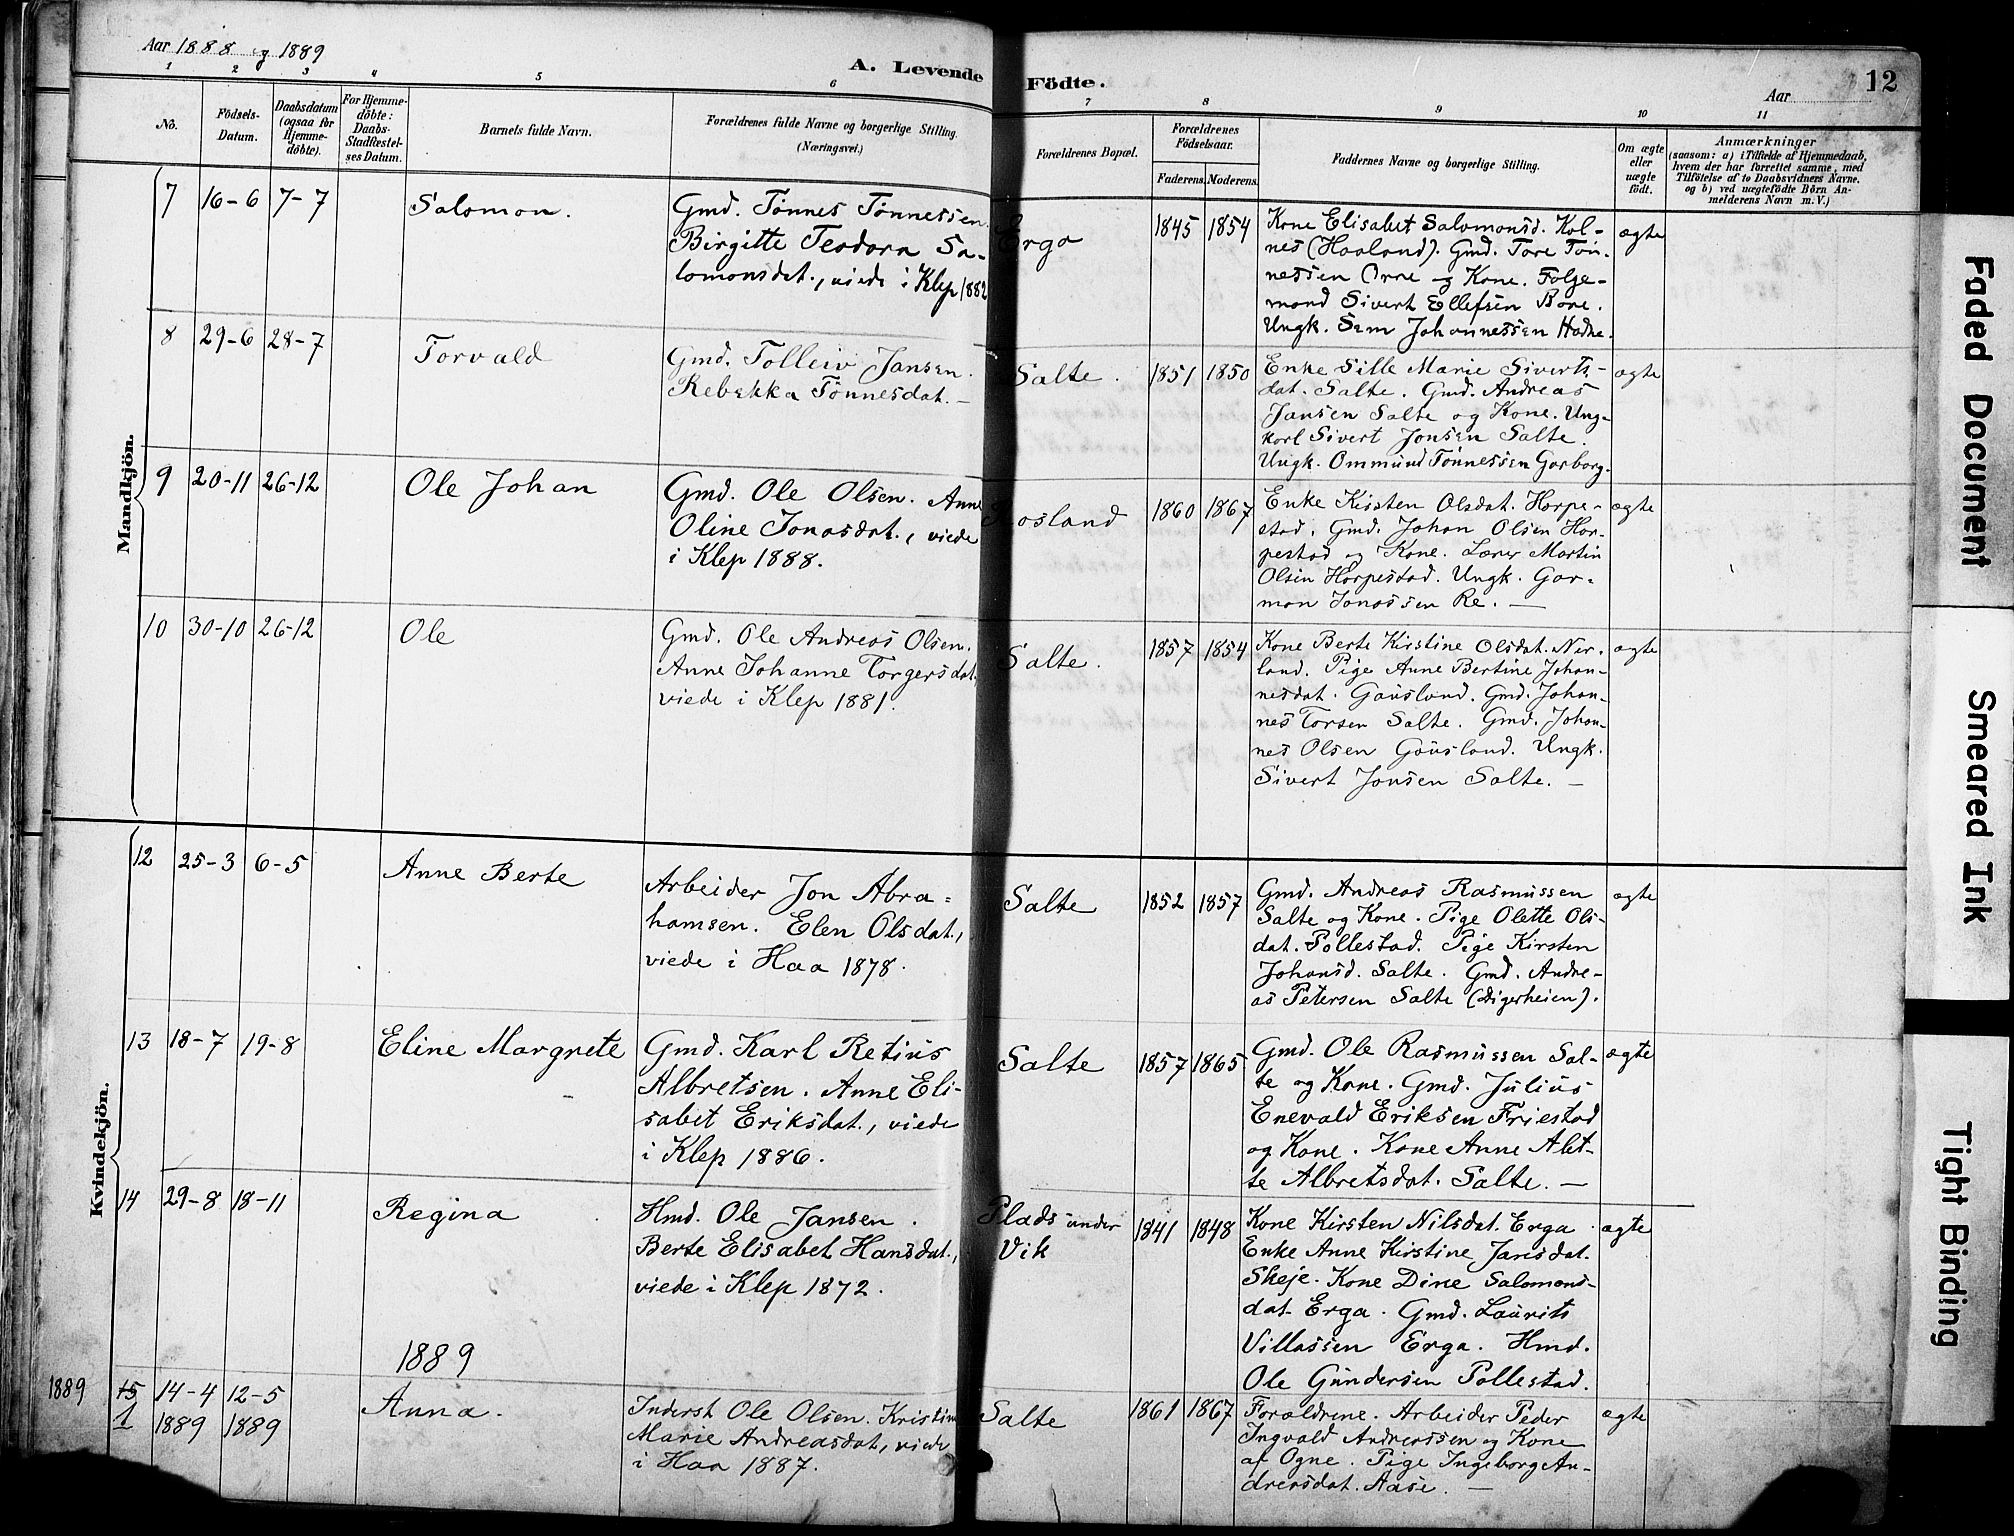 Aar 1888 og 1889
A. Levende Födte.
Aar
12
1 2 3 4 5 6 7 8 9 10 11
No.
Födsels-Datum.
Daabsdatum (ogsaa for Hjemme-döbte).
For Hjemme-döbte: Daabs-Stadfæstel-ses Datum.
Barnets fulde Navn.
Forældrenes fulde Navne og borgerlige Stilling.
(Næringsvei.)
Forældrenes Bopæl.
Forældrenes Födselsaar.
Faderens. Moderens.
Faddernes Navne og borgerlige Stilling.
Om ægte eller uægte födt.
Anmærkninger
(saasom: a) i Tilfælde af Hjemmedaab,
hvem der har forrettet samme, med
Tilföielse af to Daabsvidners Navne.
og b) ved uægtefödte Börn An-
melderens Navn m. V.)
Mandkjön.
7 16-6 7-7 Salomon.
Gmd. Tönnes Tönnessen.
Birgitte Teodora Sa-
lomonsdat., viede i Klep 1882
Erga 1845 1854
Kone Elisabet Salomonsd. Kol-
nes (Haaland). Gmd. Tore Tön-
nessen Orre og Kone. Folge-
mand Sivert Ellefsen Bore.
Ungk. Sem Johannessen Hodne.
ægte
8 29-6 28-7 Torvald
Gmd. Tolleiv Jansen.
Rebekka Tönnesdat. —
Salte. 1851 1850
Enke Sille Marie Siverts-
dat. Salte. Gmd. Andreas
Jansen Salte og Kone. Ung-
karl Sivert Jonsen Salte.
Ungk. Ommund Tönnessen Garborg.
ægte
9 20-11 26-12 Ole Johan
Gmd. Ole Olsen. Anne
Oline Jonasdat., viede
i Klep 1888.
Rosland 1860 1867
Enke Kirsten Olsdat. Horpe-
stad. Gmd. Johan Olsen Hor-
pestad og Kone. Lærer Martin
Olsen Horpestad. Ungk. Gar-
mon Jonassen Re. —
ægte
10 30-10 26-12 Ole
Gmd. Ole Andreas Olsen.
Anne Johanne Torgersdat.
viede i Klep 1881.
Salte. 1857 1854
Kone Berte Kirstine Olsdat. Ner-
land. Pige Anne Bertine Johan-
nesdat. Gausland. Gmd. Johan-
nes Torsen Salte. Gmd. Johan-
nes Olsen Gausland. Ungk.
Sivert Jonsen Salte. —
ægte
Kvindekjön.
12 25-3 6-5 Anne Berte
Arbeider Jon Abra-
hamsen. Elen Olsdat.,
viede i Haa 1878.
Salte 1852 1857
Gmd. Andreas Rasmussen
Salte og Kone. Pige Olette Ols-
dat. Pollestad. Pige Kirsten
Johansd. Salte. Gmd. Andre-
as Petersen Salte (Digerheien).
ægte
13 18-7 19-8 Eline Margrete
Gmd. Karl Retius
Albretsen. Anne Eli-
sabet Eriksdat., viede
i Klep 1886.
Salte 1857 1865
Gmd. Ole Rasmussen Sal-
te og Kone. Gmd. Julius
Enevald Eriksen Friestad
og Kone. Kone Anne Alet-
te Albretsdat. Salte. —
ægte
14 29-8 18-11 Regina
Hmd. Ole Jansen.
Berte Elisabet Hansdat.,
viede i Klep 1872.
Plads under
Vik
1841 1848
Kone Kirsten Nilsdat. Erga.
Enke Anne Kirstine Jansdat.
Skeje. Kone Dine Salomons-
dat. Erga. Gmd. Laurits
Villassen Erga. Hmd.
Ole Gundersen Pollestad.
ægte
1889
1889
15 14-4 12-5 Anna.
1 1889 1889
Inderst Ole Olsen. Kristine
Marie Andreasdat., viede
i Haa 1887.
Salte 1861 1867
Forældrene. Arbeider Peder
Ingvald Andreassen og Kone
af Ogne. Pige Ingeborg An-
dreasdat. Aase. —
ægte
Faded Document
Smeared Ink
Tight Binding